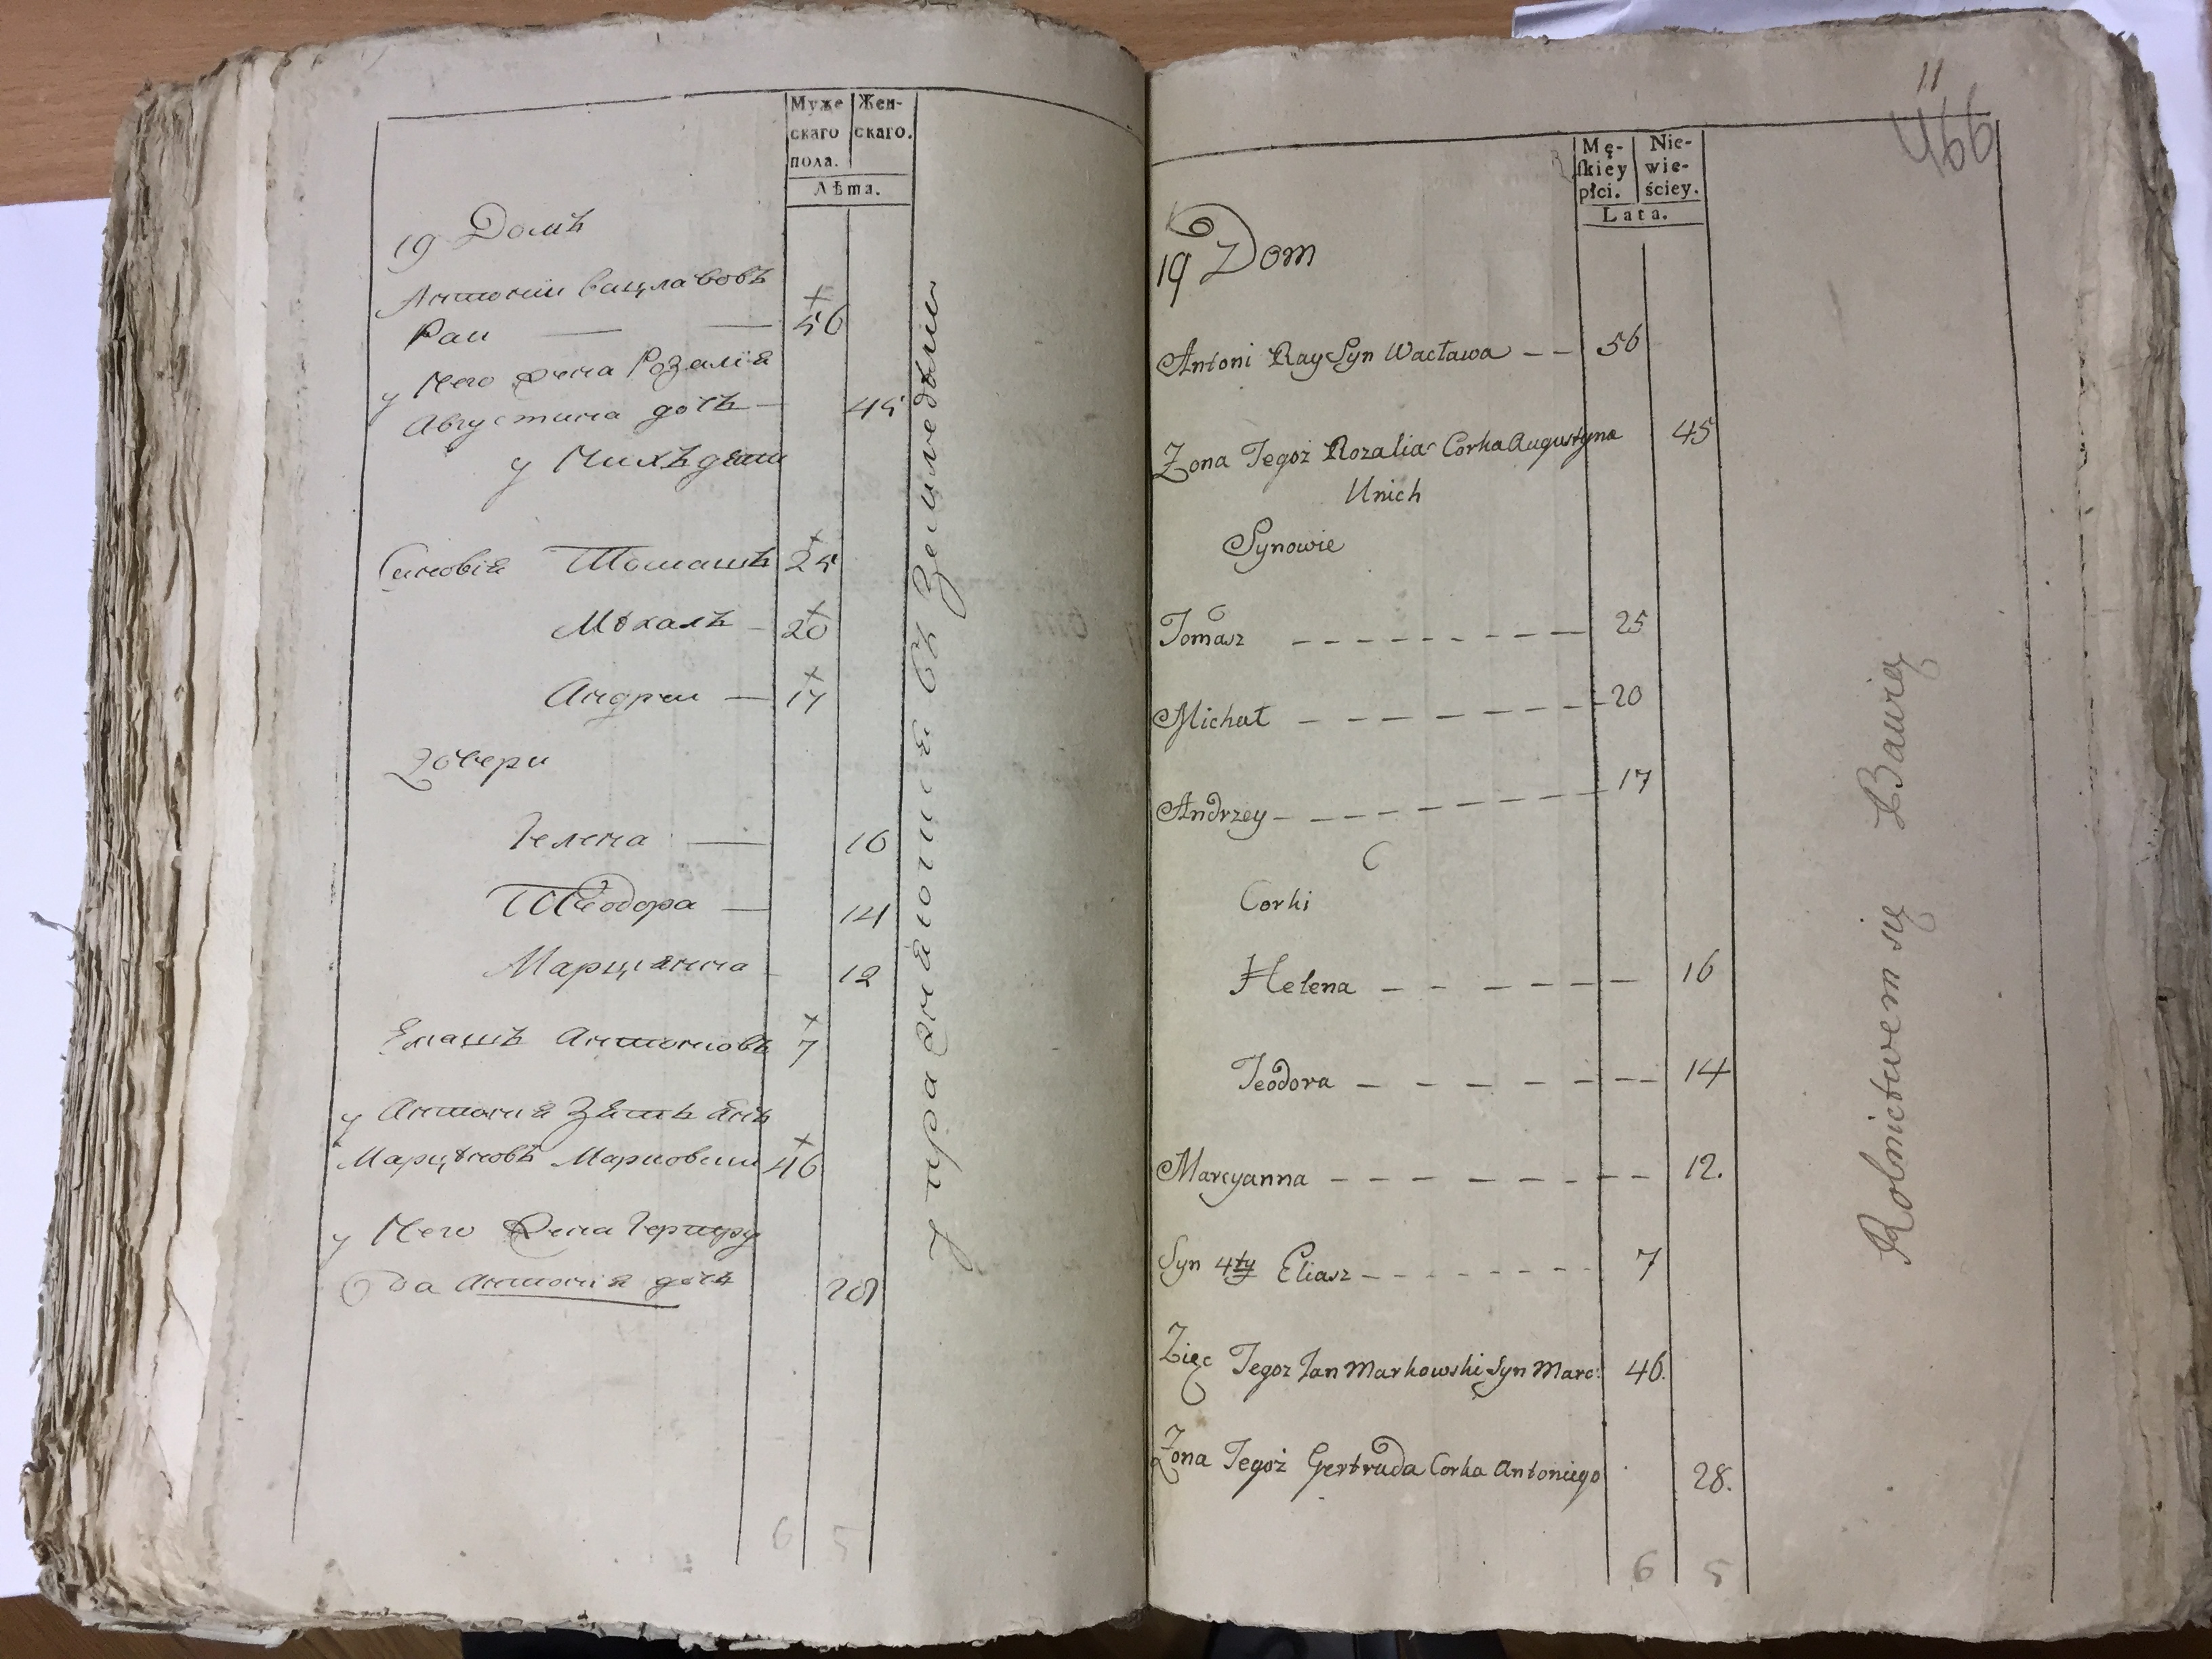 Муже
скаго
пола.
Жен-
скаго.
Лѣта.
19 Домъ
Антоній Вацлавовъ
Рай — — 56
у Него Жена Розалія
Августина дочь — 45
у Нихъ дети
Синовія Томашъ 25
Михалъ — 20
Андреи — 17
Дочери
Гелена — 16
Теодора — 14
Марціанна — 12
Елиашъ Антоновъ 7
у Антонія Зять Янъ
Марциновъ Марковский 46
у Него Жена Гертру
да Антонія дочь 28
6 5
упражняютца въ Земледѣліи
11
466
Mę-
ſkiey
płci.
Nie-
wie-
ściey.
Lata.
19 Dom
Antoni Ray Syn Wacława - - 56
Zona Tegoż Rozalia Corka Augustyna 45
Unich
Synowie
Tomasz - - - - - - - - 25
Michał - - - - - - 20
Andrzey - - - - - - - 17
Corki
Helena - - - - - - 16
Teodora - - - - - - - 14
Marcyanna - - - - - - - - 12.
Syn 4ty Eliasz - - - - - - - - 7
Zięc Tegoz Jan Markowski Syn Marc: 46.
Zona Tegoż Gertruda Corka Antoniego 28.
6 5
Rolnictwem się Bawią